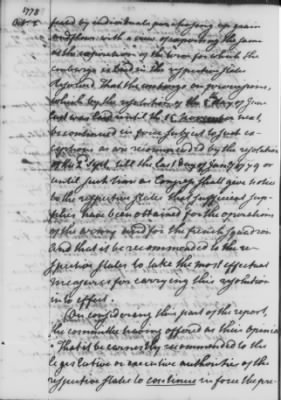 1778
Oct. 
posed by individuals purchasing up grain
and flour with a view of exporting the same
at the expiration of the term for which the
embargo is laid in the respective states
Resolved That the embargo on provisions,
which by the resolution of the 8 day of June
last was laid until the 15 November next,
be continued in force subject to such ex-
ceptions as are recommended by the resolution
of the 2 Sept. till the last day of Jany 1779 or
until such time as Congress shall give notice
to the respective states that sufficient sup-
plies have been obtained for the operations
of the army and for the french squadron
And that it be recommended to the re-
spective states to take the most effectual
measures for carrying this resolution
into effect.
On considering this part of the report,
the committee having offered as their opinion
That it be earnestly recommended to the
legislative or executive authorities of the
respective states to continue in force the pre-